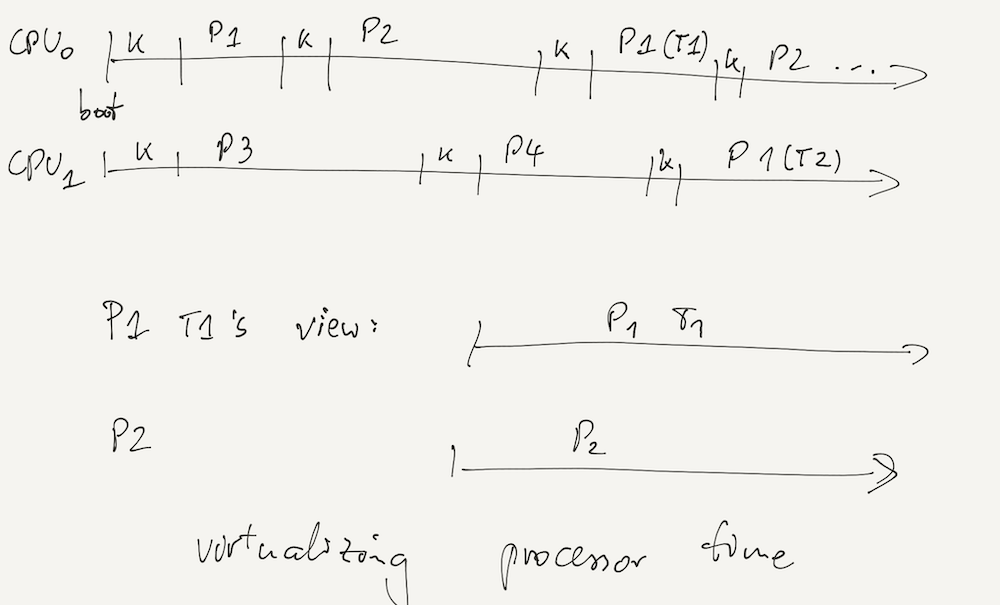 CPU0 K P1 K P2 K P1(T1) K P2 ...
boot
CPU1 K P3 K P4 K P1(T2)
P1 T1's view: P1 T1
P2 P2
virtualizing processor time